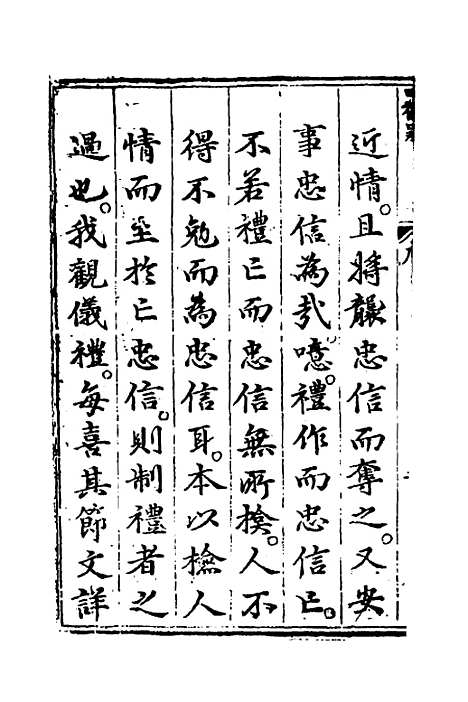 近情。且將襲忠信而奪之。又安
事忠信為哉。噫。禮作而忠信亡。
不若禮亡而忠信無所撲。人不
得不勉而為忠信耳。本以檢人
情而至於亡忠信。則制禮者之
過也。我觀儀禮。每喜其節文詳